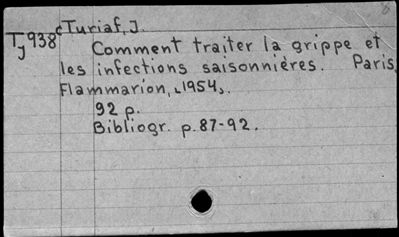 cTuriaf, J.
Tj938
Comment traiter la grippe et
les infections saisonnières. Paris,
Flammarion, [1954].
92 p.
Bibliogr. p. 87-92.